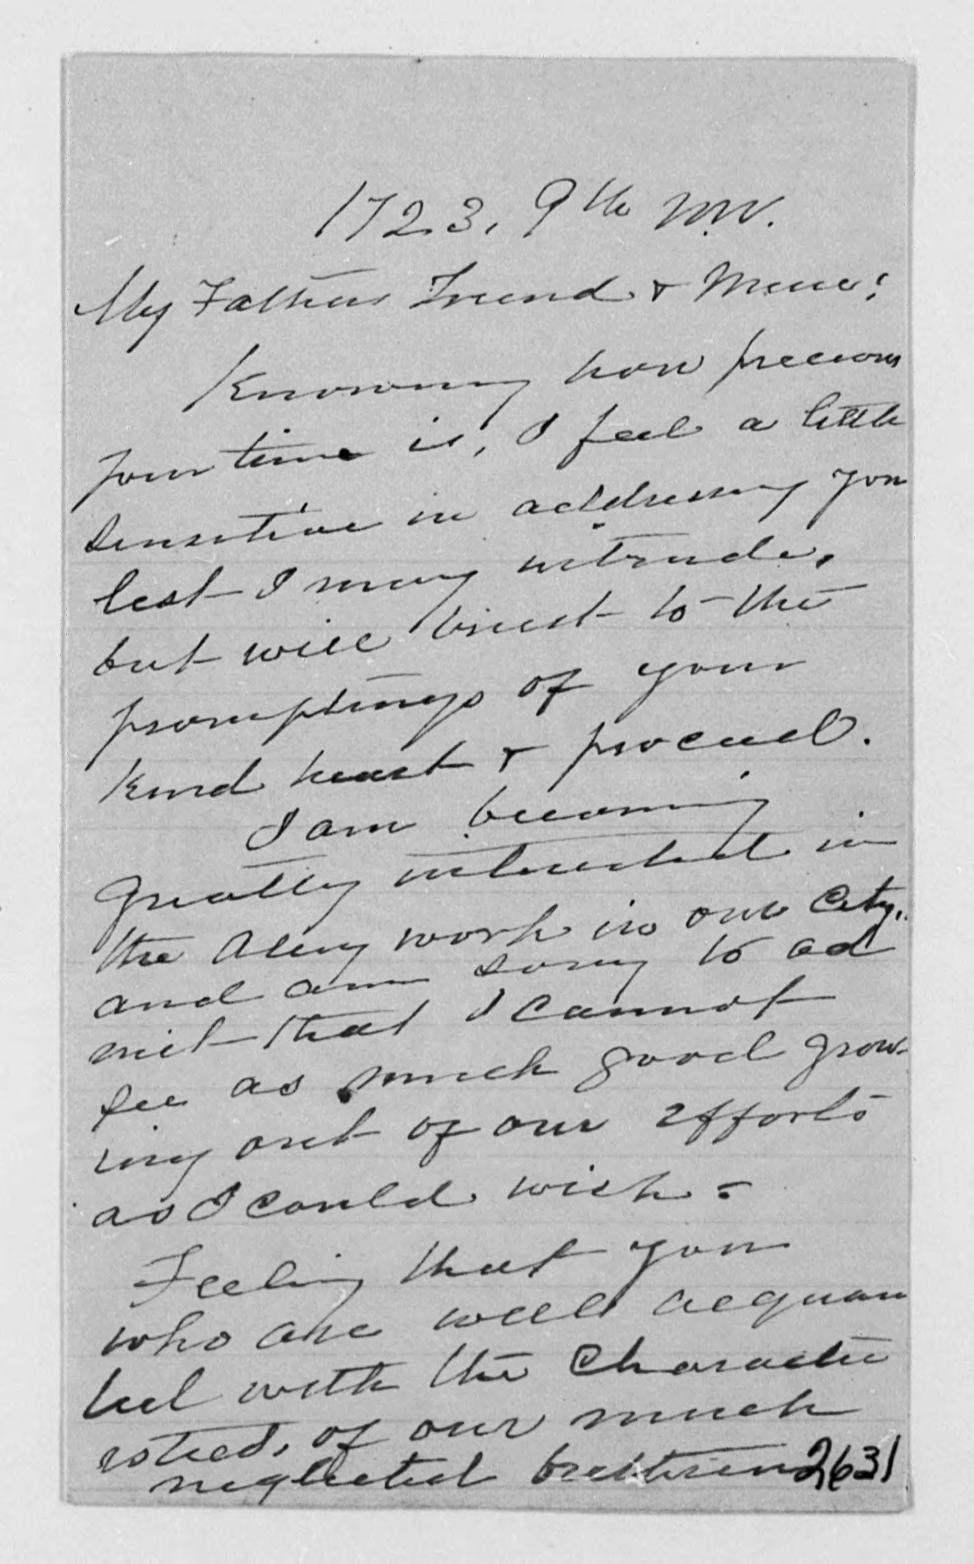 1723, 9th N.W.
My Fathers Friend & Mine:
Knowing how precious
your time is, I feel a little
sensitive in addressing you
lest I may intrude,
but will trust to the
promptings of your
kind heart & proceed.
I am becoming
greatly interested in
the Alley work in our City,
and am sorry to ad
mit that I cannot
see as much good grow-
ing out of our efforts
as I could wish-
Feeling that you
who are well acquain
ted with the characte
istics, of our much
neglected brethren
2631